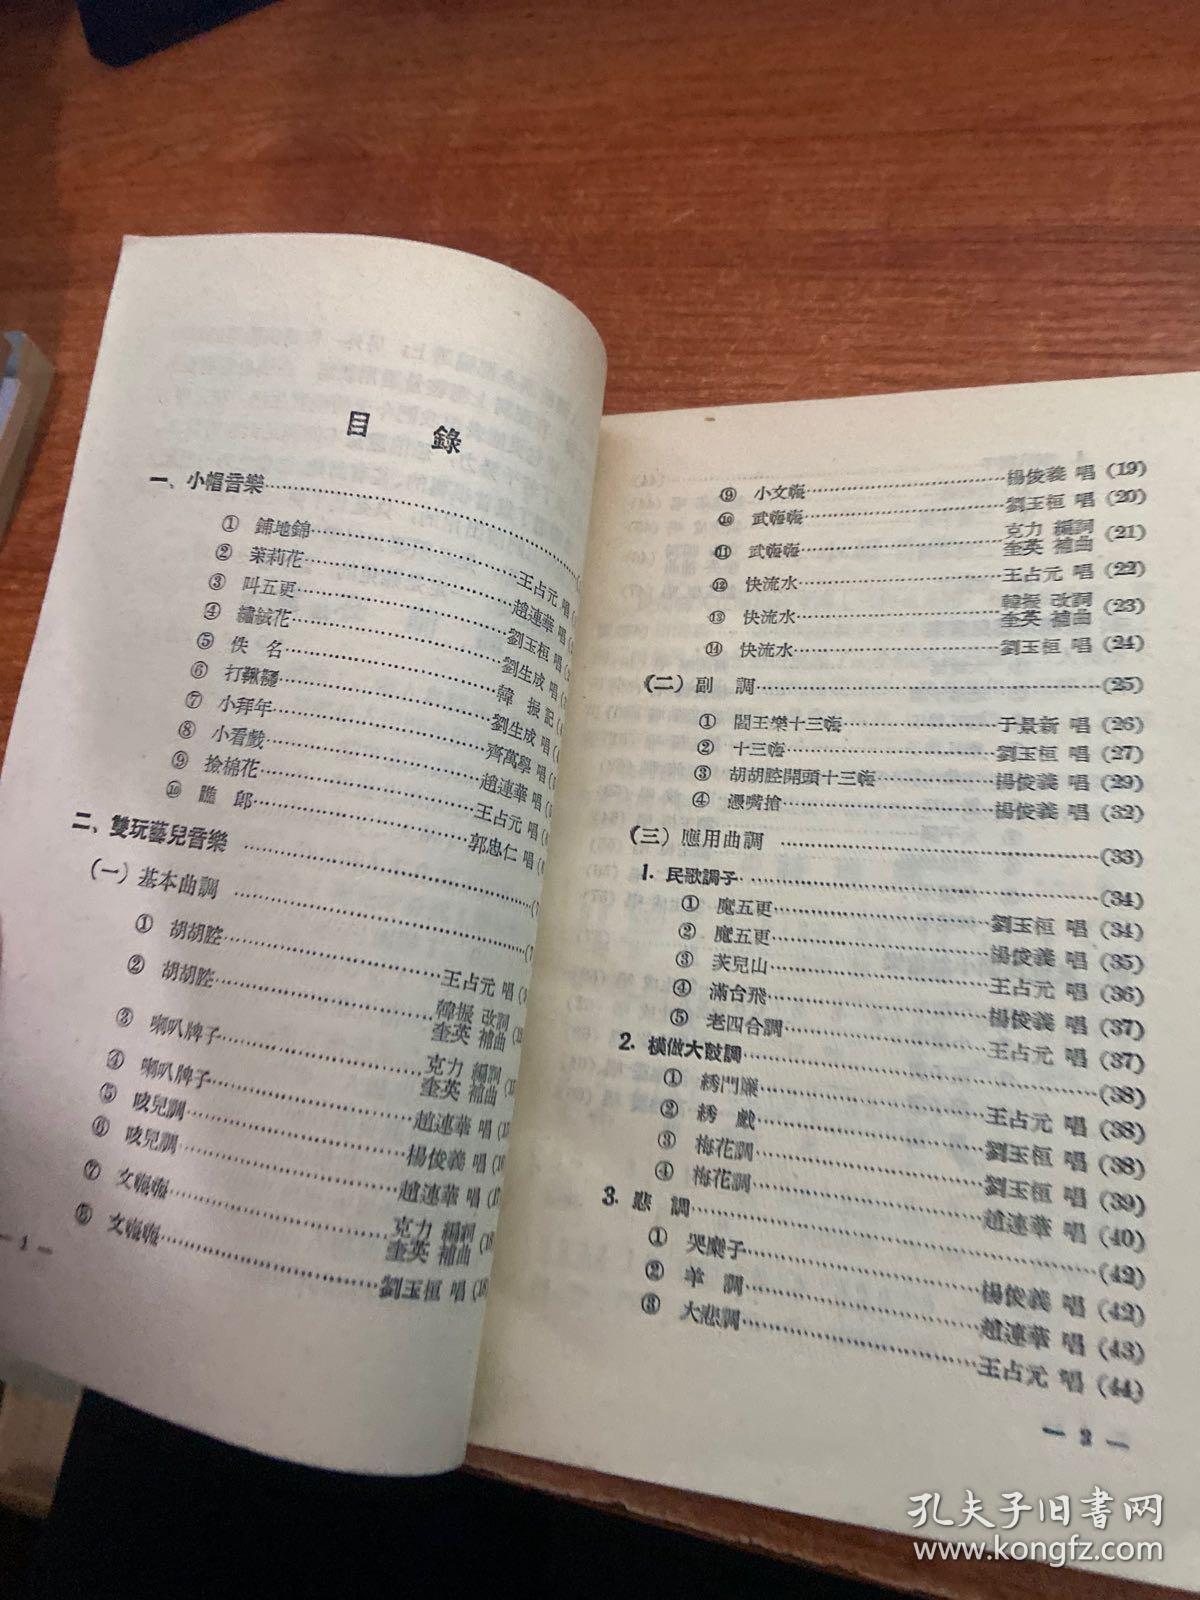 目 錄
一、小帽音樂
① 鋪地錦 王占元 唱
② 茉莉花 趙連華 唱
③ 叫五更 劉玉桓 唱
④ 繡絨花 劉生成 唱
⑤ 佚 名 韓 振 記
⑥ 打鞦韆 劉生成 唱
⑦ 小拜年 齊萬學 唱
⑧ 小看戲 趙連華 唱
⑨ 撿棉花 王占元 唱
⑩ 瞧 郎 郭忠仁 唱
二、雙玩藝兒音樂
(一)基本曲調
① 胡胡腔 王占元 唱
② 胡胡腔 韓振 改詞 奎英 補曲
③ 喇叭牌子 克力 編詞 奎英 補曲
④ 喇叭牌子 趙連華 唱
⑤ 咳兒調 楊俊義 唱
⑥ 咳兒調 趙連華 唱
⑦ 文嗨嗨 克力 編詞 奎英 補曲
⑧ 文嗨嗨 劉玉桓 唱
— 1 —
⑨ 小文嗨 楊俊義 唱 (19)
⑩ 武嗨嗨 劉玉桓 唱 (20)
⑪ 武嗨嗨 克力 編詞 奎英 補曲 (21)
⑫ 快流水 王占元 唱 (22)
⑬ 快流水 韓振 改詞 奎英 補曲 (23)
⑭ 快流水 劉玉桓 唱 (24)
(二)副 調 (25)
① 閻王樂十三嗨 于景新 唱 (26)
② 十三嗨 劉玉桓 唱 (27)
③ 胡胡腔開頭十三嗨 楊俊義 唱 (29)
④ 憑嘴搶 楊俊義 唱 (32)
(三)應用曲調 (33)
1. 民歌調子 (34)
① 魔五更 劉玉桓 唱 (34)
② 魔五更 楊俊義 唱 (35)
③ 茨兒山 王占元 唱 (36)
④ 滿台飛 楊俊義 唱 (37)
⑤ 老四合調 王占元 唱 (37)
2. 模倣大鼓調 (38)
① 綉門簾 王占元 唱 (38)
② 綉 戲 劉玉桓 唱 (38)
③ 梅花調 劉玉桓 唱 (39)
④ 梅花調 趙連華 唱 (40)
3. 悲 調 (42)
① 哭糜子 楊俊義 唱 (42)
② 羊 調 趙連華 唱 (43)
③ 大悲調 王占元 唱 (44)
— 2 —
孔夫子旧書网
www.kongfz.com